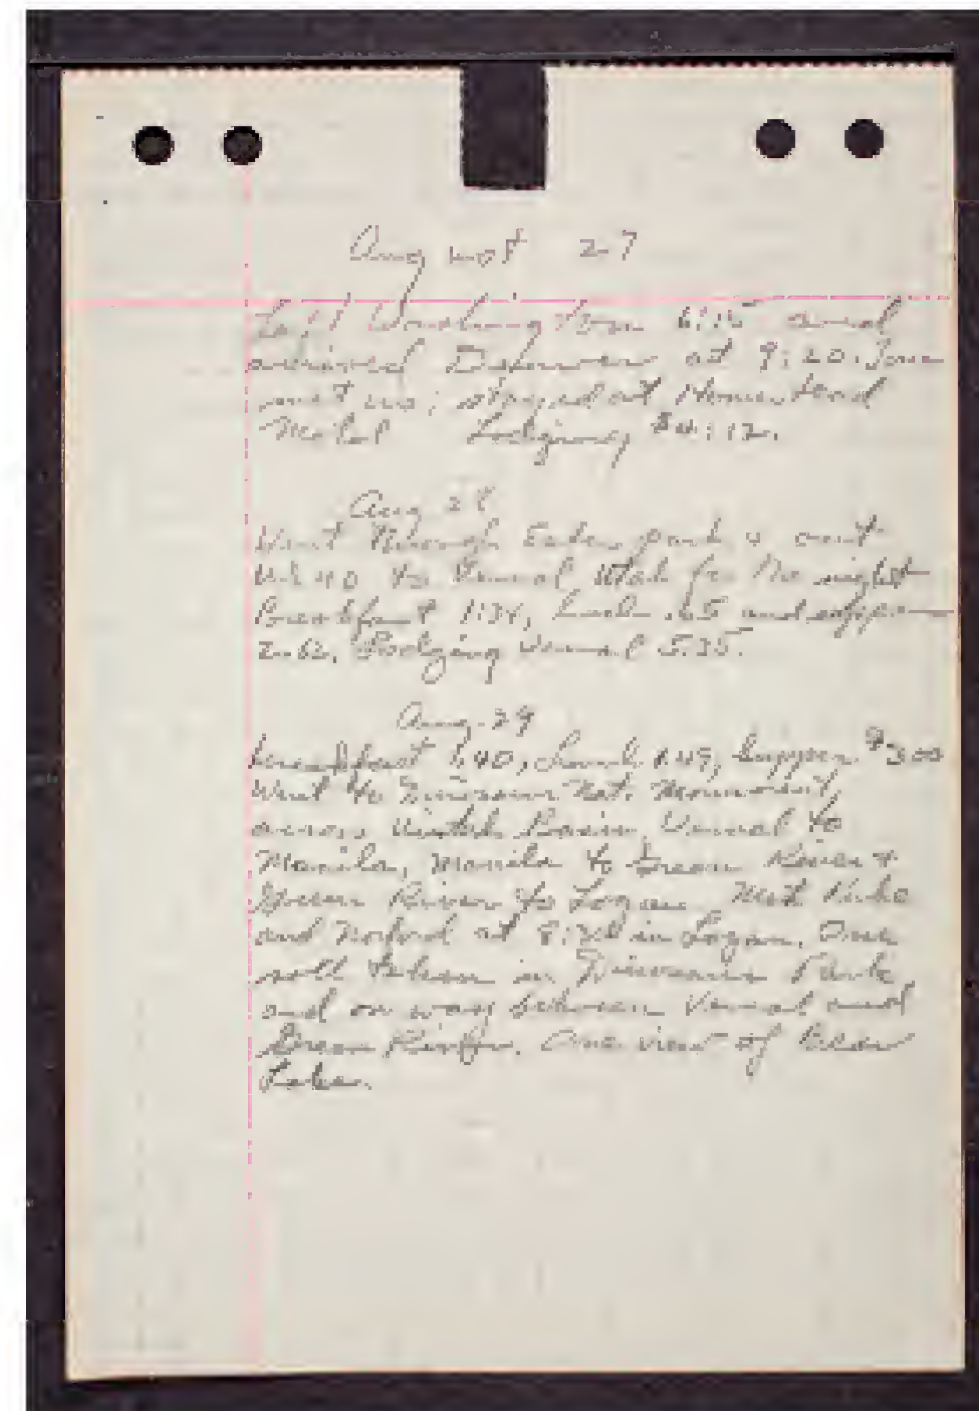 August 27
Left Washington 6:15 and
arrived Denver at 9:20. Jane
met us; stayed at Homestead
Motel Lodging $4.12.
Aug 28
Went through Estes park & out
US 40 to Vernal Utah for the night
Breakfast 1.34, lunch .65 and supper
2.62, Lodging Vernal 5.35.
Aug. 29
breakfast 1.40, lunch 1.49, supper $3.00
Went to Dinosaur Nat. Monument,
across Uintah Basin, Vernal to
Manila, Manila to Green River &
Green River to Logan. Met
and at in Logan. One
roll taken in Dinosaur Park
and on way between Vernal and
Green River. One view of Bear
Lake.